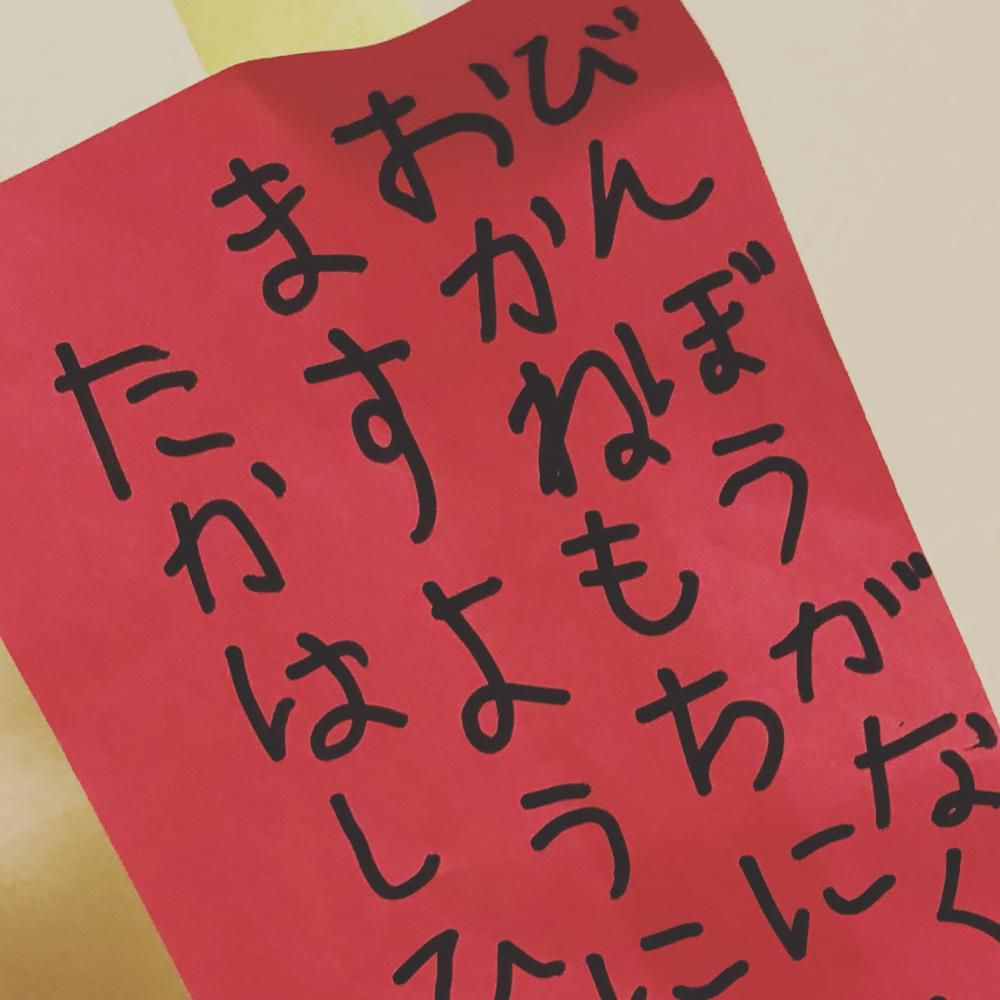 びんぼうがなく
おかねもちに
ますように
たかはしひ